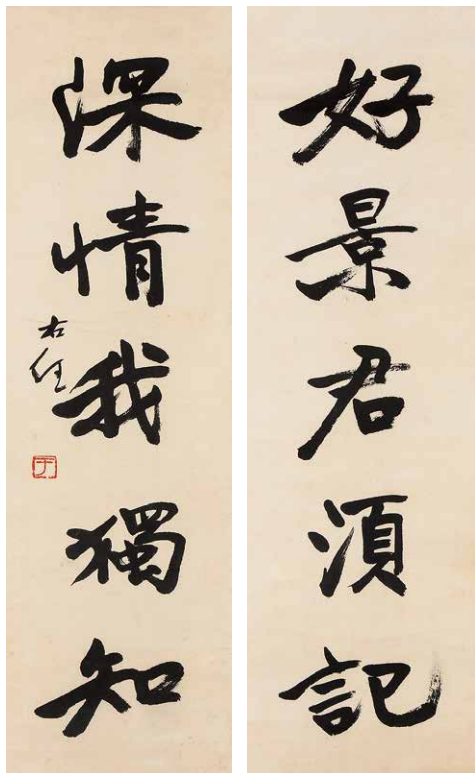 好景君須記
深情我獨知
右任
于